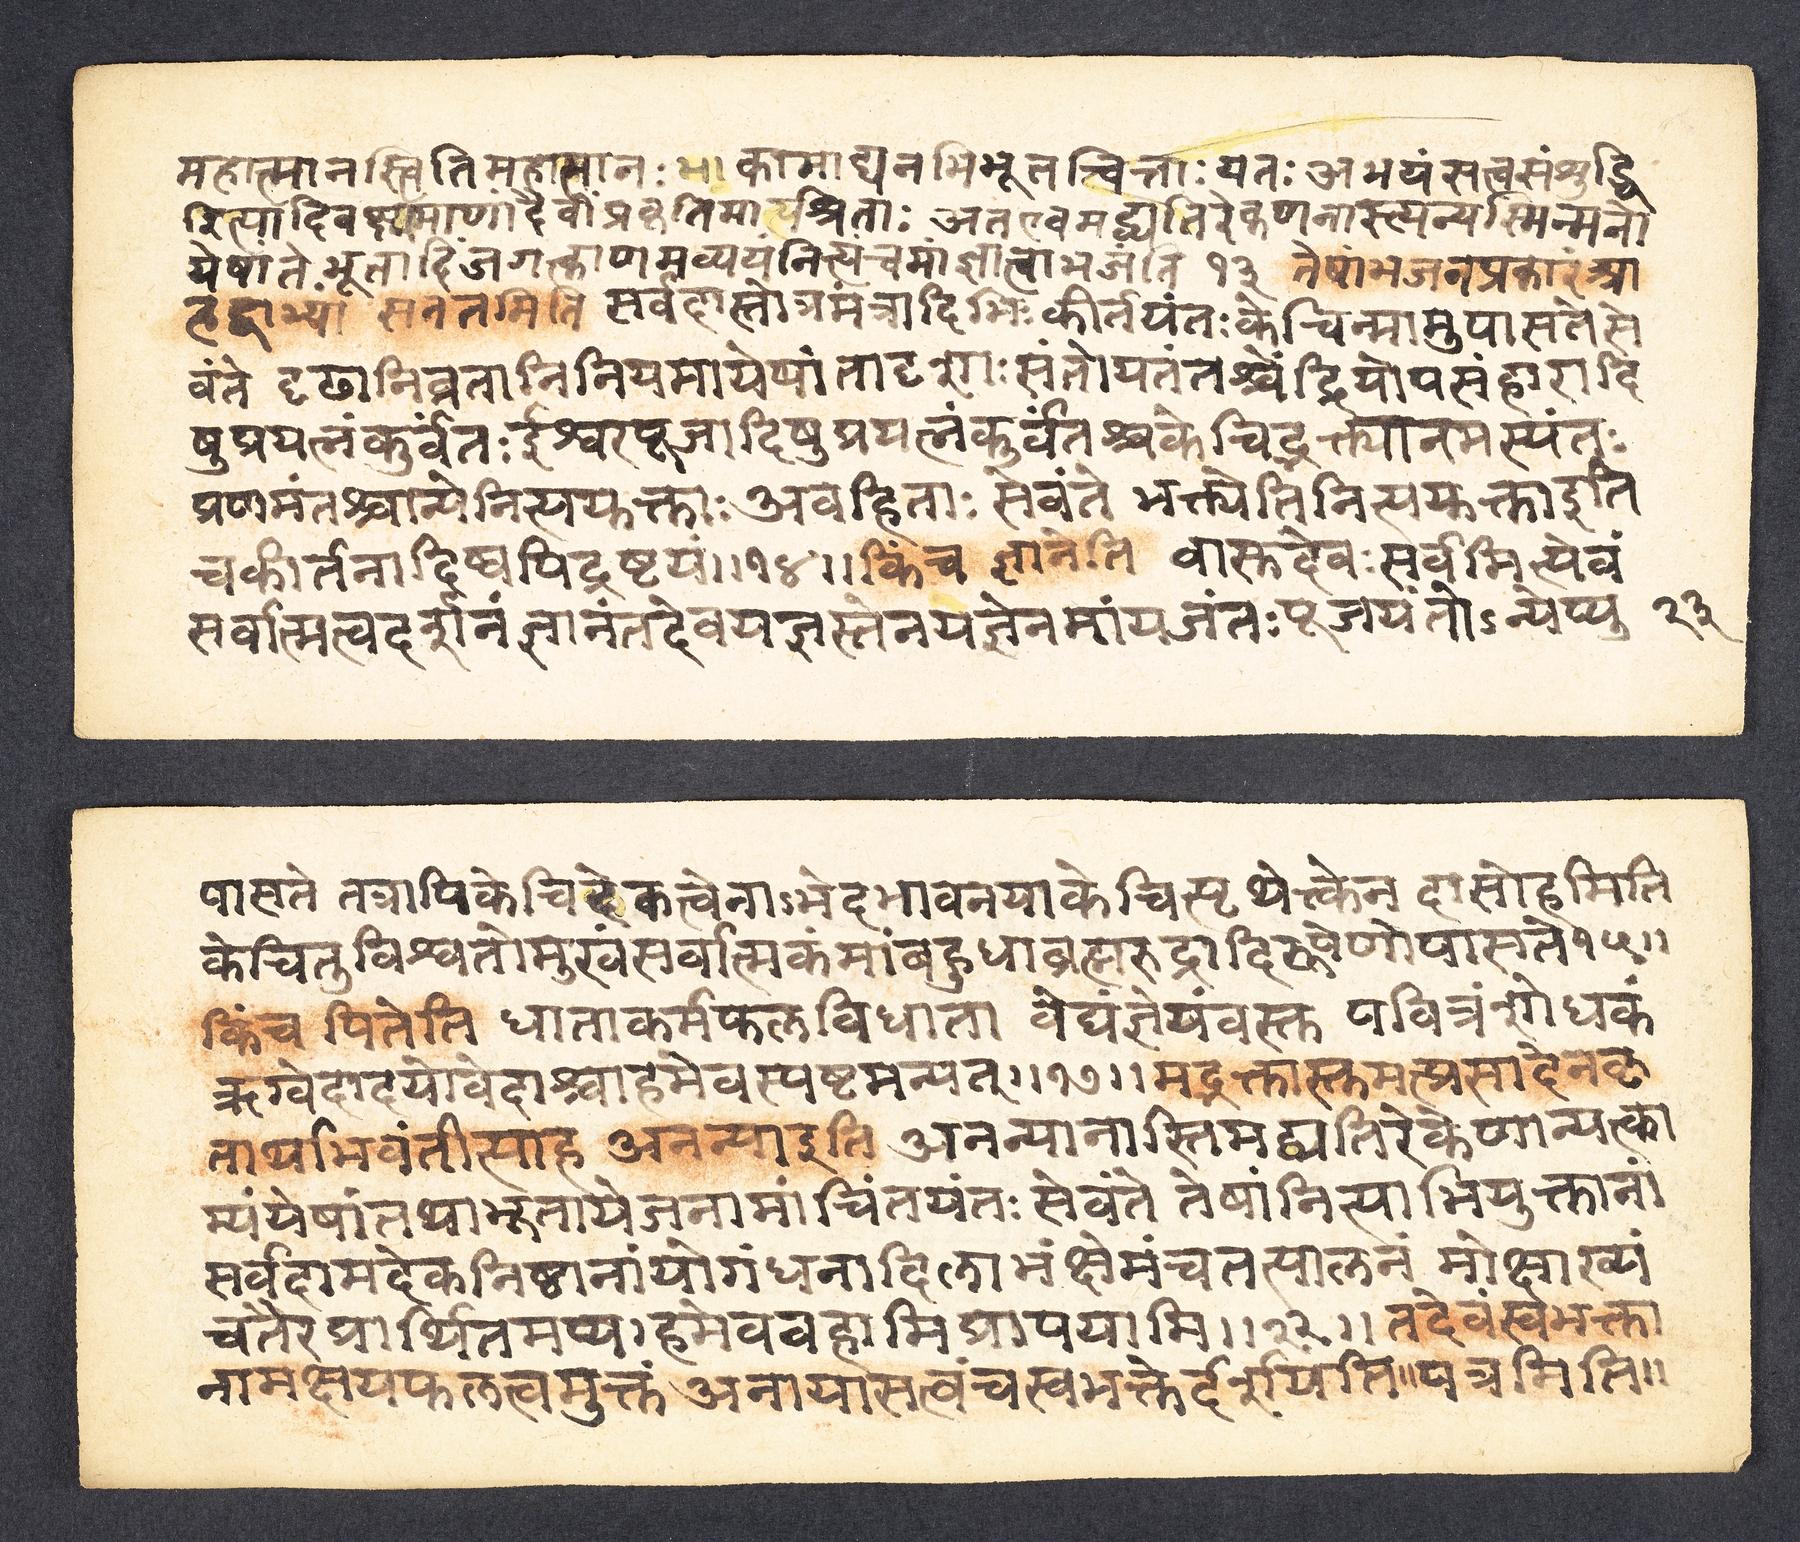 महात्मानस्त्विति महात्मानः कामाद्यनभिभूतचित्ताः यतः अभयंसत्वसंशुद्धि
रित्यादिवक्ष्यमाणांदैवीं प्रकृतिमाश्रिताः अतएवमद्व्यतिरेकेणनास्त्यन्यस्मिन्मनो
येषांते भूतादिंजगत्कारणमव्ययंनित्यंचमांज्ञात्वाभजंति १३ तेषांभजनप्रकारंश्रा
हद्वाभ्यां सततमिति सर्वदास्तोत्रमंत्रादिभिः कीर्तयंतः केचिन्मामुपासतेसे
वंते दृढानिव्रतानिनियमायेषां तादृशाः संतोयतंतश्चेंद्रियोपसंहारादि
षुप्रयत्नंकुर्वंतः ईश्वरपूजादिषुप्रयत्नंकुर्वंतश्चकेचिद्भक्त्यानमस्यंतः
प्रणमंतश्चान्येनित्ययुक्ताः अवहिताः सेवंते भक्त्येतिनित्ययुक्ताइति
चकीर्तनादिष्वपिद्रष्टव्यं॥१४॥ किंच ज्ञानेति वासुदेवः सर्वमित्येवं
सर्वात्मत्वदर्शनं ज्ञानंतदेवयज्ञस्तेनयज्ञेनमांयजंतः पूजयंतोऽन्येप्यु २३
पासते तत्रापिकेचिदेकत्वेनाऽभेदभावनयाकेचित्पृथक्त्वेन दासोहमिति
केचित्तुविश्वतोमुखंसर्वात्मिकंमांबहुधाब्रह्मरुद्रादिरूपेणोपासते१५॥
किंच पितेति धाताकर्मफलविधाता वेद्यंज्ञेयंवस्तु पवित्रंशोधकं
ऋग्वेदादयोवेदाश्चाहमेवस्पष्टमन्यत्॥१७॥ मद्भक्तास्तुमत्प्रसादेनकृ
तार्थाभवंतीत्याह अनन्याइति अनन्यानास्तिमद्व्यतिरेकेणान्यत्का
म्यंयेषांतथाभूतायेजनामां चिंतयंतः सेवंते तेषांनित्याभियुक्तानां
सर्वदामदेकनिष्ठानांयोगंधनादिलाभंक्षेमंचतत्पालनं मोक्षाख्यं
चतैरप्रार्थितमप्यहमेववहामिप्रापयामि॥२२॥ तदेवंस्वभक्ता
नामक्षयफलत्वमुक्तं अनायासत्वंचस्वभक्तेर्दर्शयति॥पत्रमिति॥